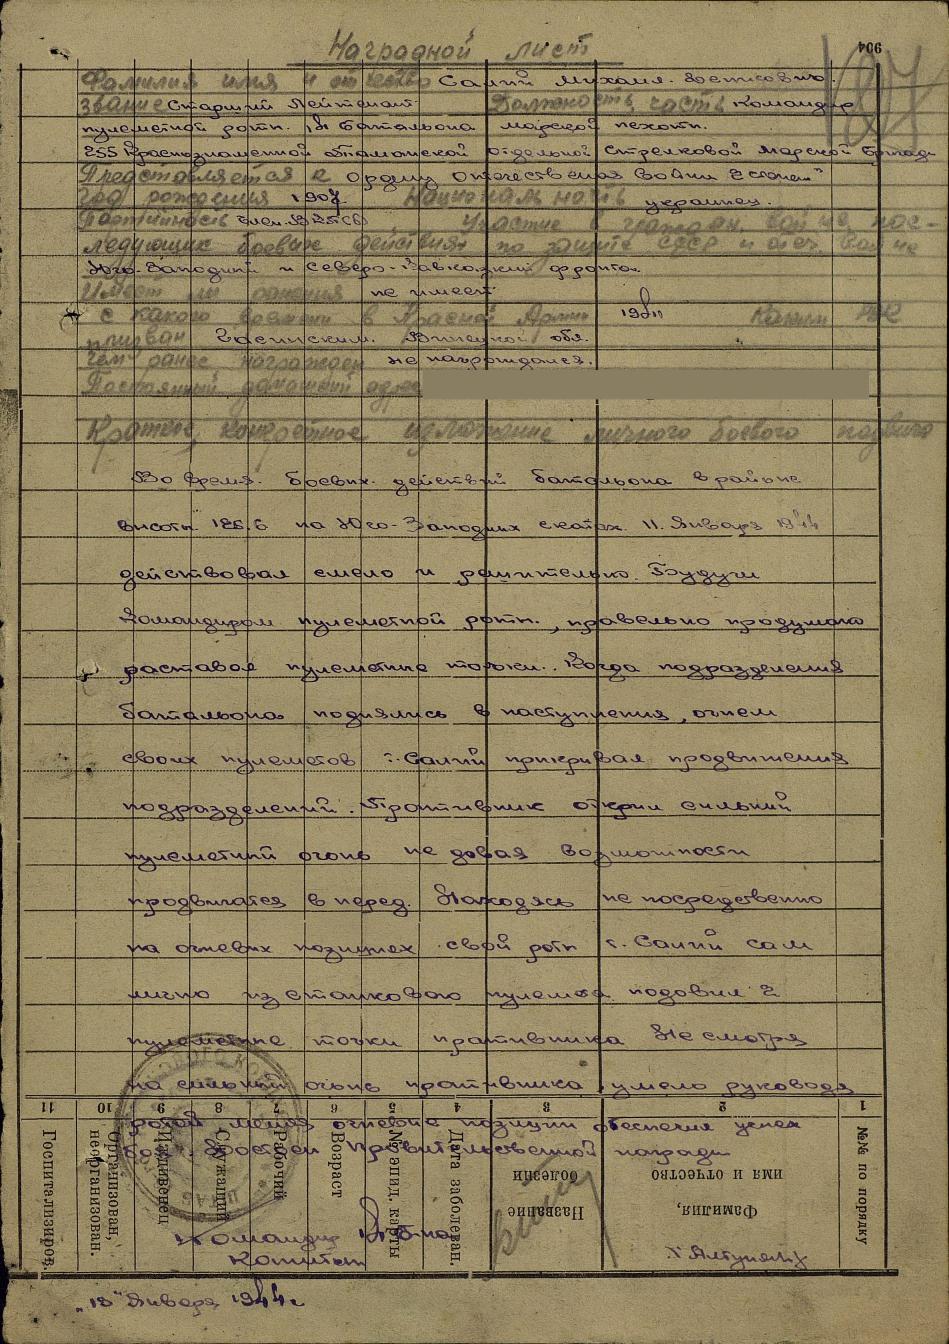 904
Наградной лист
Фамилия имя и отчество Салий Михаил
звание Старший Лейтенант Должность, часть Командир
пулеметной роты. Батальона морской пехоты.
255 Краснознаменной Таманской отдельной стрелковой морской бригады
Представляется к Ордену Отечественная Война 2 степени"
Год рождения 1907 Национальность украинец.
Партийность член ВКП(б) Участие в граждан. войне, пос-
ледующих боевых действиях по защите СССР и отеч. войне
Юго-Западний и Северо-Кавказкий фронта.
Имеет ли ранения не имеет
с какого времени в Красной Армии 1941 Каким РВК
призван обл.
Чем ранее награжден не награждался.
Постоянный домашний адрес
Краткое, конкретное изложение личного боевого подвига
Во время боевых действий батальона в районе
висоты на Юго-Западных скатах 11. Января 1944
действовал смело и решительно. Будучи
Командиром пулеметной роты, правельно продумано
раставил пулеметные точки. Когда подразделения
батальона поднялись в наступления, огнем
своих пулеметов т. Салий прикривал продвижения
подразделений. Противник открил сильний
пулеметний огонь не довая возможности
продвигатся в перед. Находясь не посредственно
на огневих позициях свой роти т. Салий сам
лично из станкового пулемета подовил 2
пулеметние точки противника Не смотря
на сильний огонь противника, умело руководя
ротой меняя огневие позиции обеспечил успех
боя. Достоен Правительственной награди
Командир
Капитан
"18" Января 1944 г
11 10 9 8 7 6 5 4 3 2 1
Госпитализиров.
Организован,
неорганизован.
Иждивенец
Служащий
Рабочий
Возраст
№ эпид. карты
Дата заболеван.
Название
болезни
Фамилия,
имя и отчество
№№ по порядку